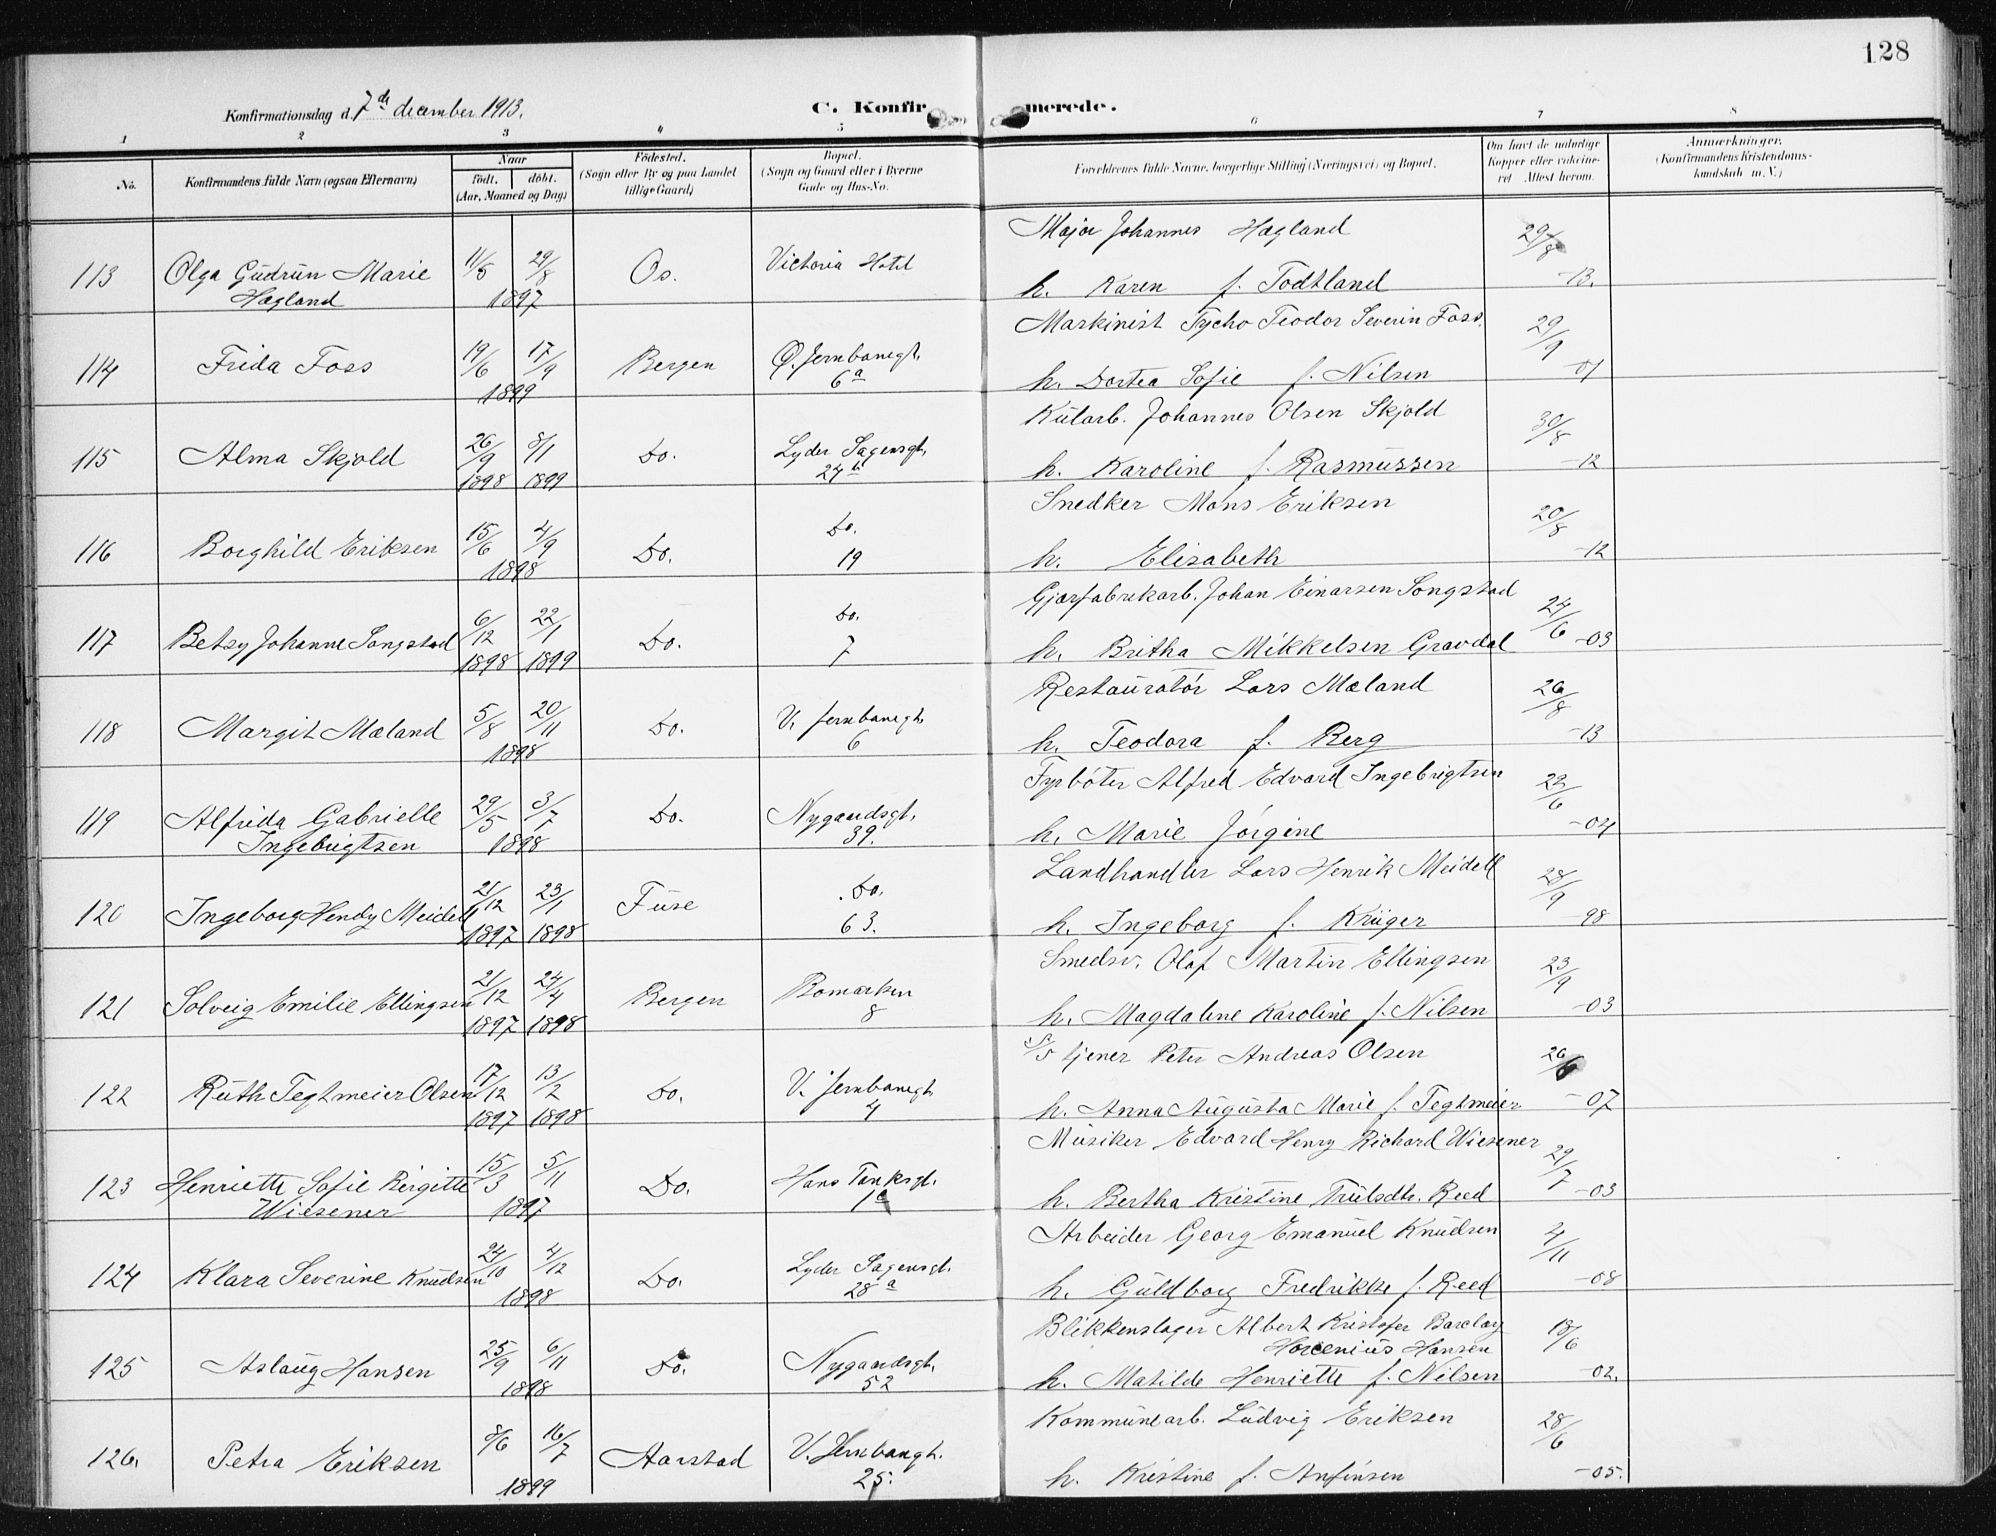 128
Konfirmationsdag d. 7de december 1913.
C. Konfirmerede.
1 2 3 4 5 6 7 8
No.
Konfirmandens fulde Navn (ogsaa Efternavn)
Naar
født. døbt.
(Aar, Maaned og Dag)
Fødested.
(Sogn eller By og paa Landet
tillige Gaard)
Bopæl.
(Sogn og Gaard eller i Byerne
Gade og Hus-No.
Forældrenes fulde Navne, borgerlige Stilling (Næringsvei) og Bopæl.
Om havt de naturlige
Kopper eller vakcine-
ret Attest herom.
Anmærkninger.
(Konfirmandens Kristendoms-
kundskab m. V.)
Major Johannes Hægland 29/8
113 Olga Gudrun Marie 11/5 29/8 Os. Victoria Hotel
Hægland 1897 h. Karen f. Todtland -13.
Maskinist Tycho Teodor Severin Foss. 29/9
114 Frida Foss 19/6 17/9 Bergen Ø. Jernbanegt.
1899 6a h. Dortea Sofie f. Nilsen -01
Kularb. Johannes Olsen Skjold 30/8
115 Alma Skjold 26/9 8/1 Do. Lyder Sagensgt.
1898 1899 24b h. Karoline f. Rasmussen -12
Snedker Mons Eriksen 20/8
116 Borghild Eriksen 15/6 4/9 Do. Do.
1898 19 h. Elisabeth -12
Gjærfabrikarb. Johan Einarsen Songstad 24/6
117 Betsy Johanne Songstad 6/12 22/1 Do. Do.
1898 1899 7 h. Britha Mikkelsen Gravdal -03
Restauratør Lars Mæland 26/8
118 Margit Mæland 5/8 20/11 Do. V. Jernbanegt.
1898 6 h. Teodora f. Berg -13
Fyrbøter Alfred Edvard Ingebrigtsen 22/6
119 Alfrida Gabrielle 29/5 3/7 Do. Nygaardsgt.
Ingebrigtsen 1898 39. h. Marie Jørgine -04
Landhandler Lars Henrik Meidell 28/9
120 Ingeborg Hendy Meidell 21/12 23/1 Fuse Do.
1897 1898 63. h. Ingeborg f. Krüger -98
Smedsv. Olaf Martin Ellingsen 23/9
121 Solveig Emilie Ellingsen 21/12 24/4 Bergen Bomarken
1897 1898 8 h. Magdalene Karoline f. Nilsen -03
S/S tjener Peter Andreas Olsen 26/6
122 Ruth Tegtmeier Olsen 17/12 13/2 Do. V. Jernbanegt
1897 1898 4 h. Anna Augusta Marie f. Tegtmeier -07
Musiker Edvard Henry Richard Wiesener 29/7
123 Henriette Sofie Birgitte 15/3 5/11 Do. Hans Tanksgt.
Wiesener 1897 1c h. Bertha Kristine Trulsdtr. Reed -03
Arbeider Georg Emanuel Knudsen 4/11
124 Klara Severine Knudsen 24/10 4/12 Do. Lyder Sagensgt.
1898 28a h. Guldborg Fredrikke f. Reed -08
Blikkenslager Albert Kristofer Barclay 18/6
Hansen
125 Aslaug Hansen 25/9 6/11 Do. Nygaardsgt.
1898 52 h. Matilde Henriette f. Nilsen -02.
Kommunearb. Ludvig Eriksen 28/6
126. Petra Eriksen 8/6 16/7 Aarstad V. Jernbangt.
1899 25. h. Kristine f. Anfinsen -05.